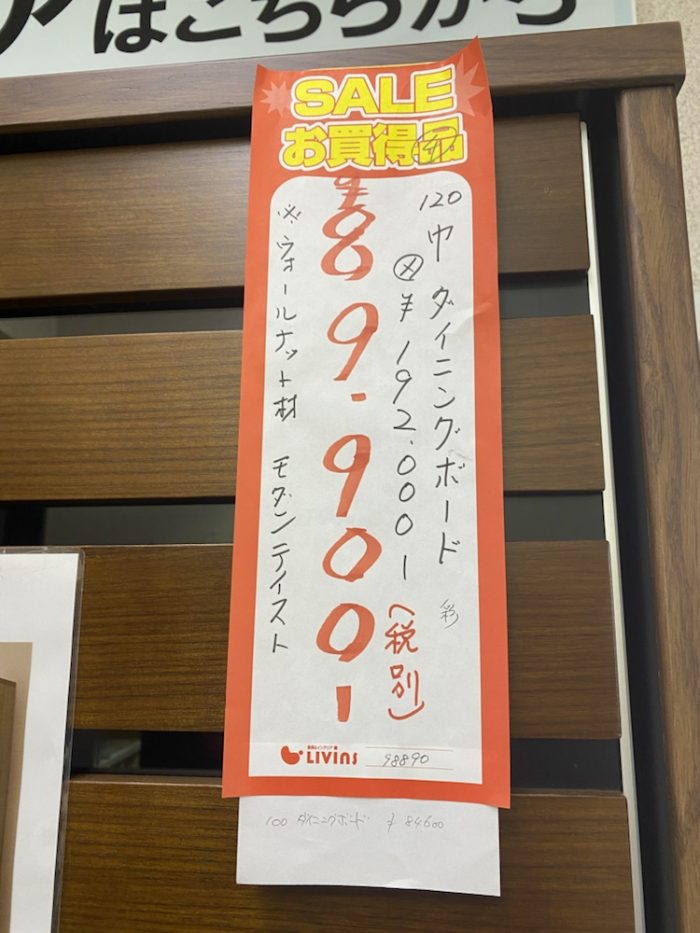 アはこちらから
SALE
お買得品
120巾 ダイニングボード 彩
㋱ ¥192.000-
¥89.900-
(税別)
※ウォールナット材 モダンテイスト
LIVINS
98890
100 ダイニングボード ¥84600